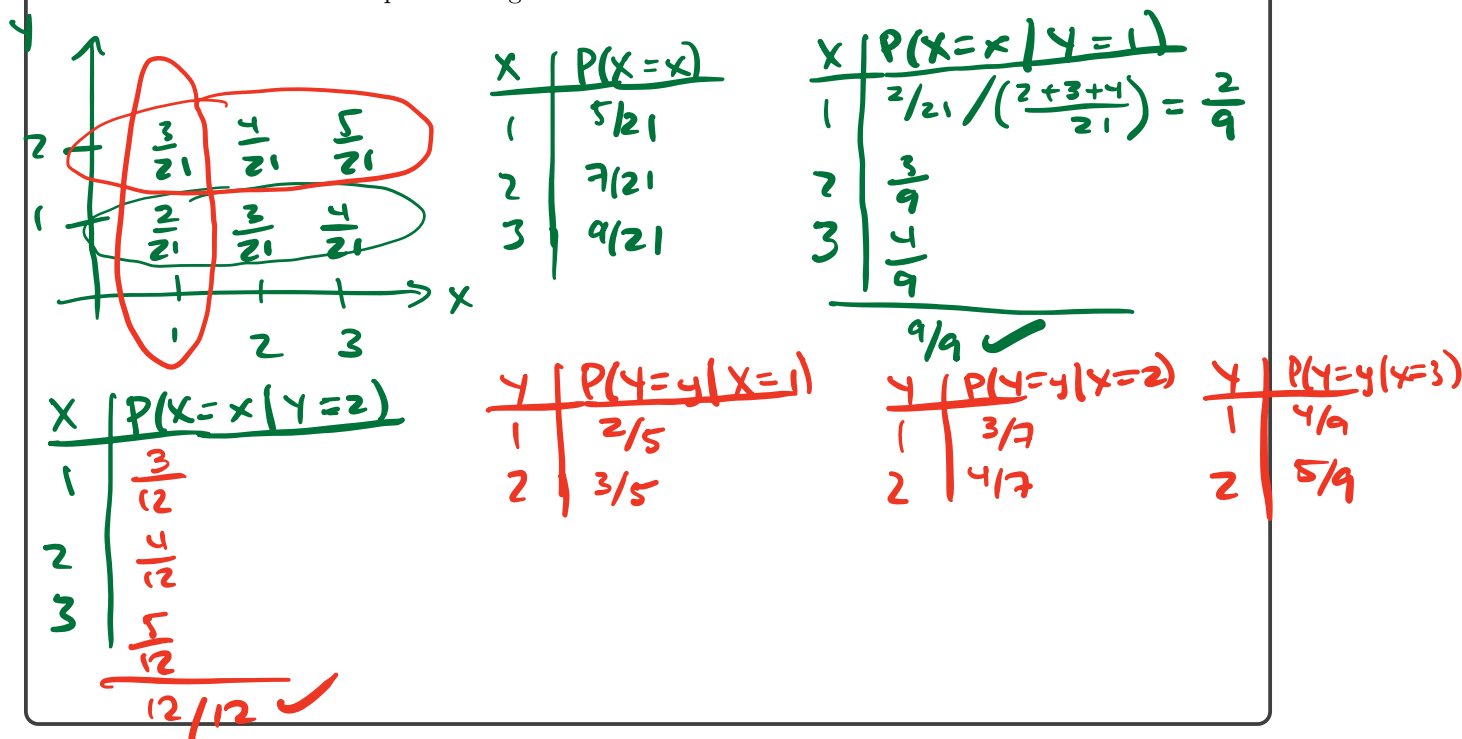 y
2 3/21 4/21 5/21
1 2/21 3/21 4/21
1 2 3
x
X P(X = x)
1 5/21
2 7/21
3 9/21
X P(X = x | Y = 1)
1 2/21 / ((2+3+4)/21) = 2/9
2 3/9
3 4/9
9/9 ✓
X P(X = x | Y = 2)
1 3/12
2 4/12
3 5/12
12/12 ✓
Y P(Y = y | X = 1)
1 2/5
2 3/5
Y P(Y = y | X = 2)
1 3/7
2 4/7
Y P(Y = y | X = 3)
1 4/9
2 5/9